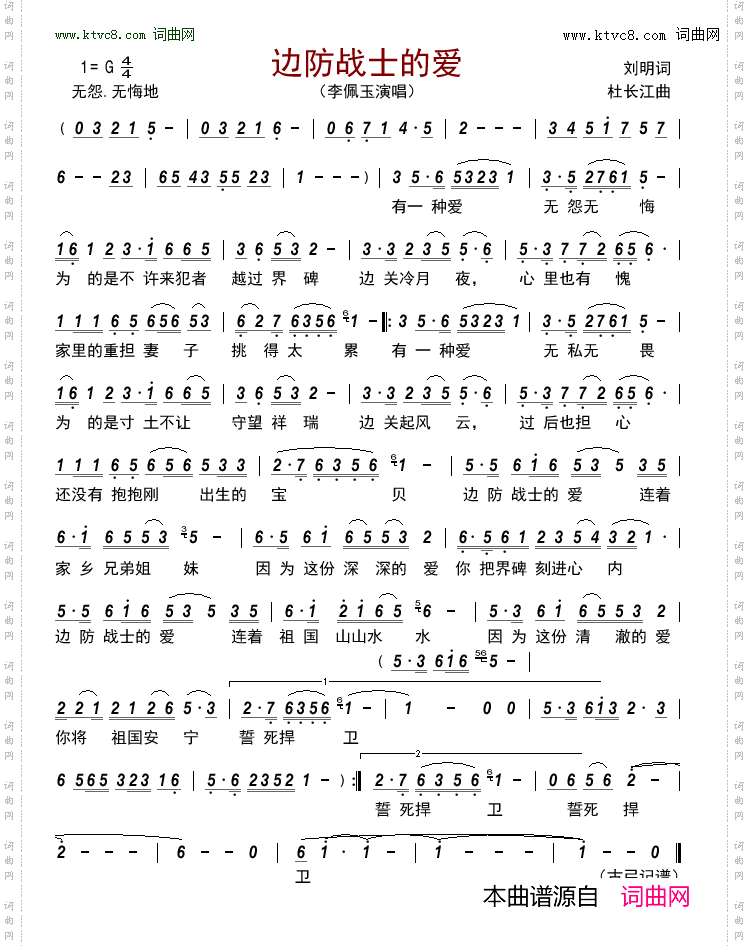 www.ktvc8.com 词曲网
www.ktvc8.com 词曲网
1=G 4/4
边防战士的爱
刘明词
无怨.无悔地
（李佩玉演唱）
杜长江曲
( 0 3 2 1 5 - | 0 3 2 1 6 - | 0 6 7 1 4·5 | 2 - - - | 3 4 5 1 7 5 7 |
6 - - 2 3 | 6 5 4 3 5 5 2 3 | 1 - - - ) | 3 5·6 5 3 2 3 1 | 3·5 2 7 6 1 5 - |
有一 种爱 无 怨无 悔
1 6 1 2 3·1 6 6 5 | 3 6 5 3 2 - | 3·3 2 3 5 5·6 | 5·3 7 7 2 6 5 6· |
为 的是不 许来犯者 越过 界 碑 边 关冷月 夜， 心 里也有 愧
1 1 1 6 5 6 5 6 5 3 | 6 2 7 6 3 5 6 6 1 - ‖: 3 5·6 5 3 2 3 1 | 3·5 2 7 6 1 5 - |
家里的重担 妻 子 挑 得 太 累 有 一 种爱 无 私无 畏
1 6 1 2 3·1 6 6 5 | 3 6 5 3 2 - | 3·3 2 3 5 5·6 | 5·3 7 7 2 6 5 6· |
为 的是寸 土不让 守望 祥 瑞 边 关起风 云， 过 后也担 心
1 1 1 6 5 6 5 6 5 3 3 | 2·7 6 3 5 6 6 1 - | 5·5 6 1 6 5 3 5 3 5 |
还没有 抱抱刚 出生的 宝 贝 边 防 战士的 爱 连着
6·1 6 5 5 3 3 5 - | 6·5 6 1 6 5 5 3 2 | 6·5 6 1 2 3 5 4 3 2 1· |
家 乡 兄弟姐 妹 因 为 这份 深 深的 爱 你 把界碑 刻进心 内
5·5 6 1 6 5 3 5 3 5 | 6·1 2 1 6 5 5 6 - | 5·3 6 1 6 5 5 3 2 |
边 防 战士的 爱 连着 祖 国 山山水 水 因 为 这份 清 澈的 爱
( 5·3 6 1 6 56 5 - |
2 2 1 2 1 2 6 5·3 | 1 2·7 6 3 5 6 6 1 - | 1 - 0 0 | 5·3 6 1 3 2·3 |
你将 祖国安 宁 誓 死捍 卫
6 5 6 5 3 2 3 1 6 | 5·6 2 3 5 2 1 - ) :‖ 2 2·7 6 3 5 6 6 1 - | 0 6 5 6 2 - |
誓 死捍 卫 誓死 捍
2 - - - | 6 - - 0 | 6 1·1 - | 1 - - - | 1 - - 0 ‖
卫
（古弓记谱）
本曲谱源自 词曲网
词曲网